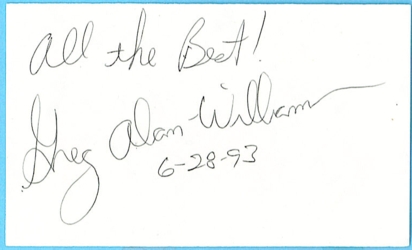 All the Best!
Greg Alan-Williams
6-28-93